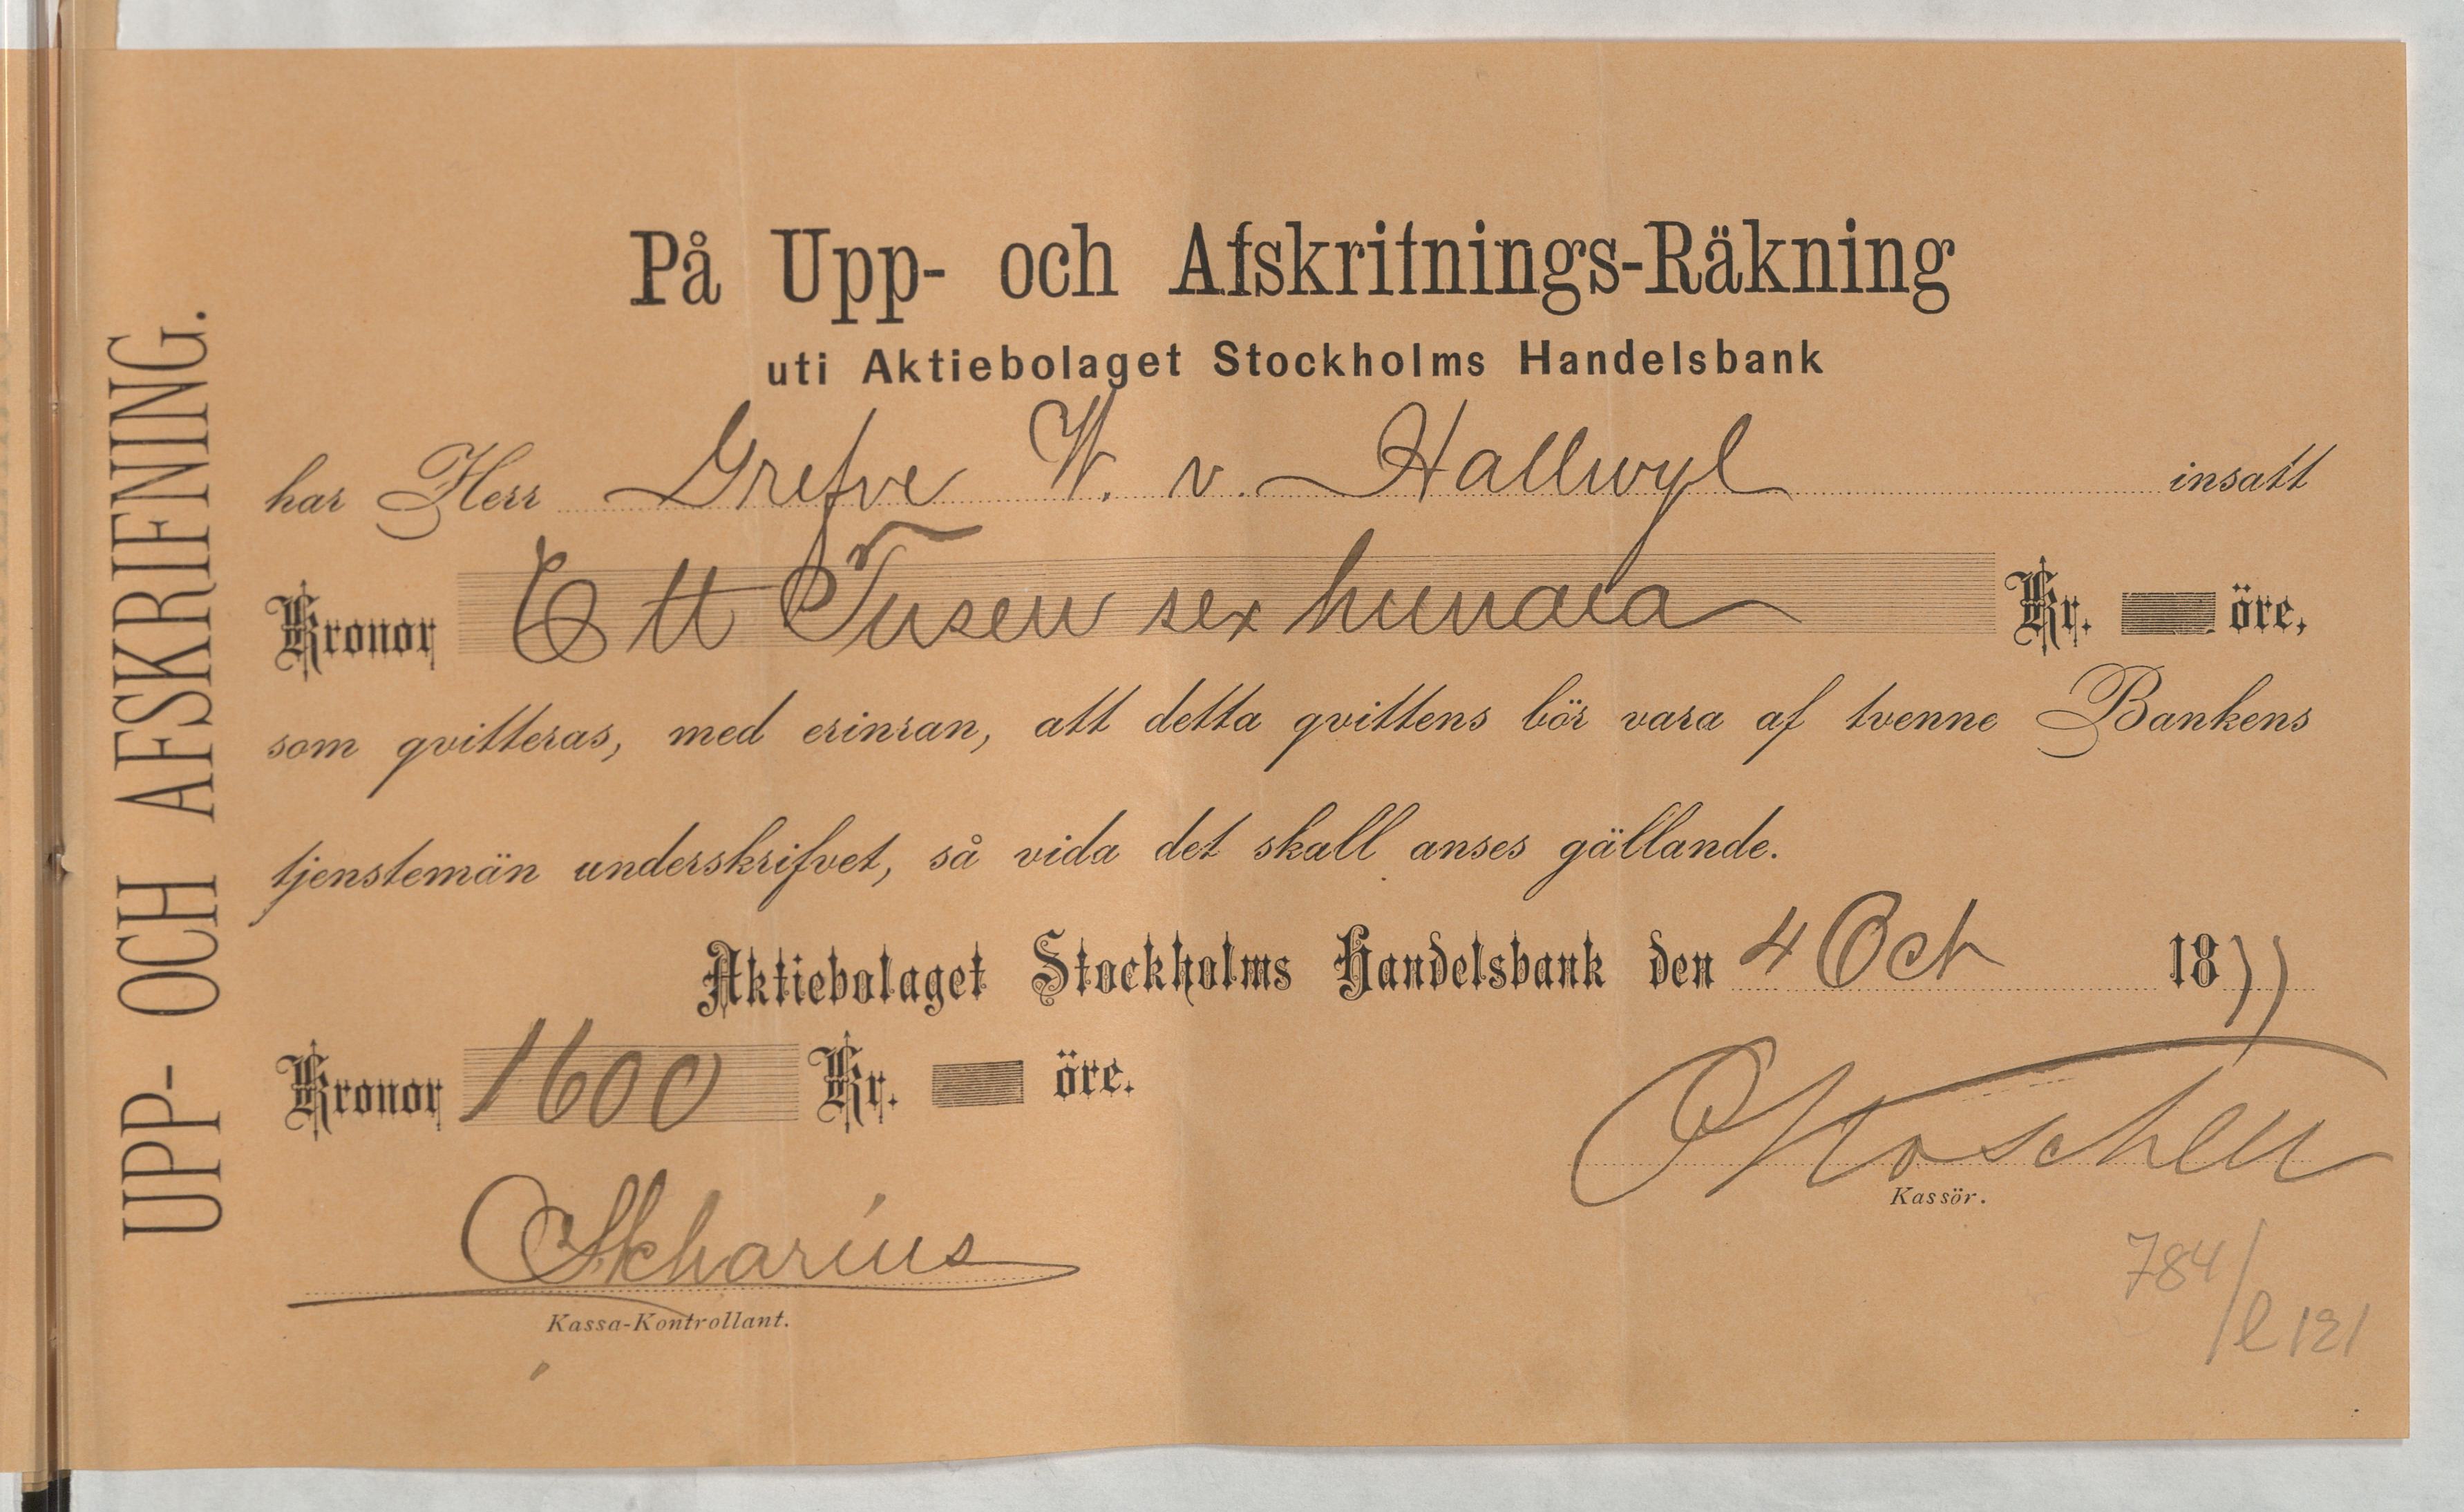 UPP- OCH AFSKRIFNING.
På Upp- och Afskrifnings-Räkning
uti Aktiebolaget Stockholms Handelsbank
har Herr Grefve W. v. Hallwyl insatt
Kronor Ett Tusen sex hundra Kr. öre,
som qvitteras, med erinran, att detta qvittens bör vara af tvenne Bankens
tjenstemän underskrifvet, så vida det skall anses gällande.
Aktiebolaget Stockholms Handelsbank den 4 Oct 18
Kronor 1600 Kr. öre.
Kassör.
Kassa-Kontrollant.
784/
l 121